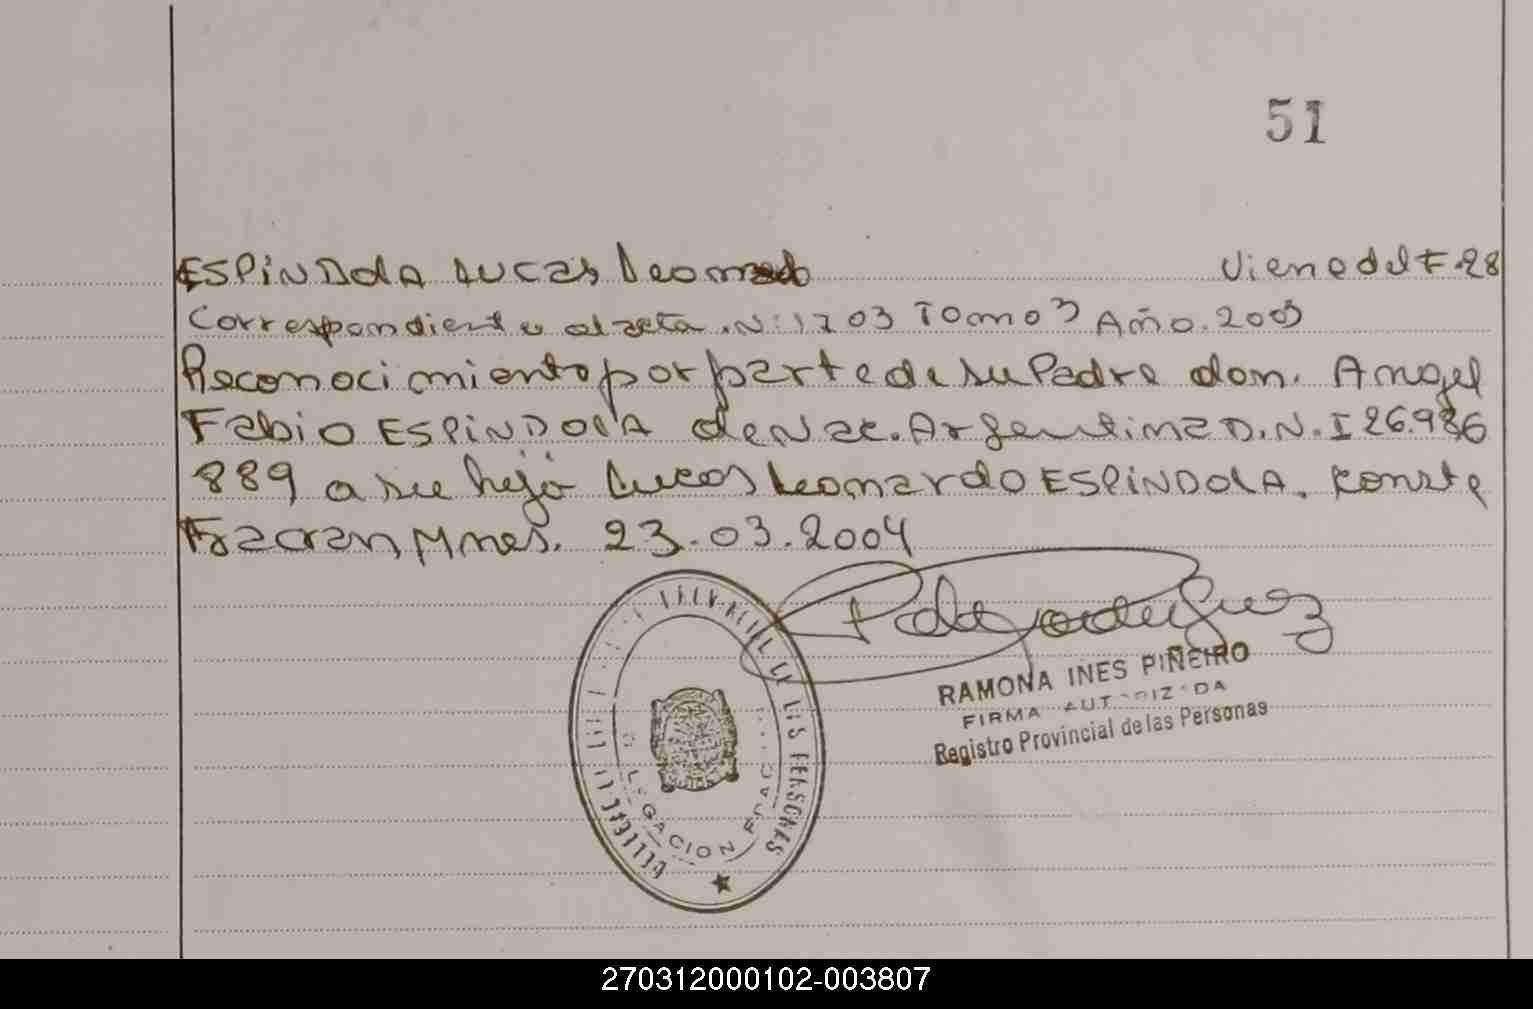 51
ESPINDOLA LUCAS Leonardo Viene del F.28
Correspondiente al acta.N:1703 Tomo 3 Año.2003
Reconocimiento por parte de su Padre don. Angel
Fabio ESPINDOLA de Nac. Argentina D.N.I 26.986
889 a su hijo Lucas Leonardo ESPINDOLA. Conste
Fracran, Mnes. 23.03.2004
RAMONA INES PIÑEIRO
FIRMA AUTORIZADA
Registro Provincial de las Personas
DE LAS PERSONAS
DELEGACION FRAC
270312000102-003807